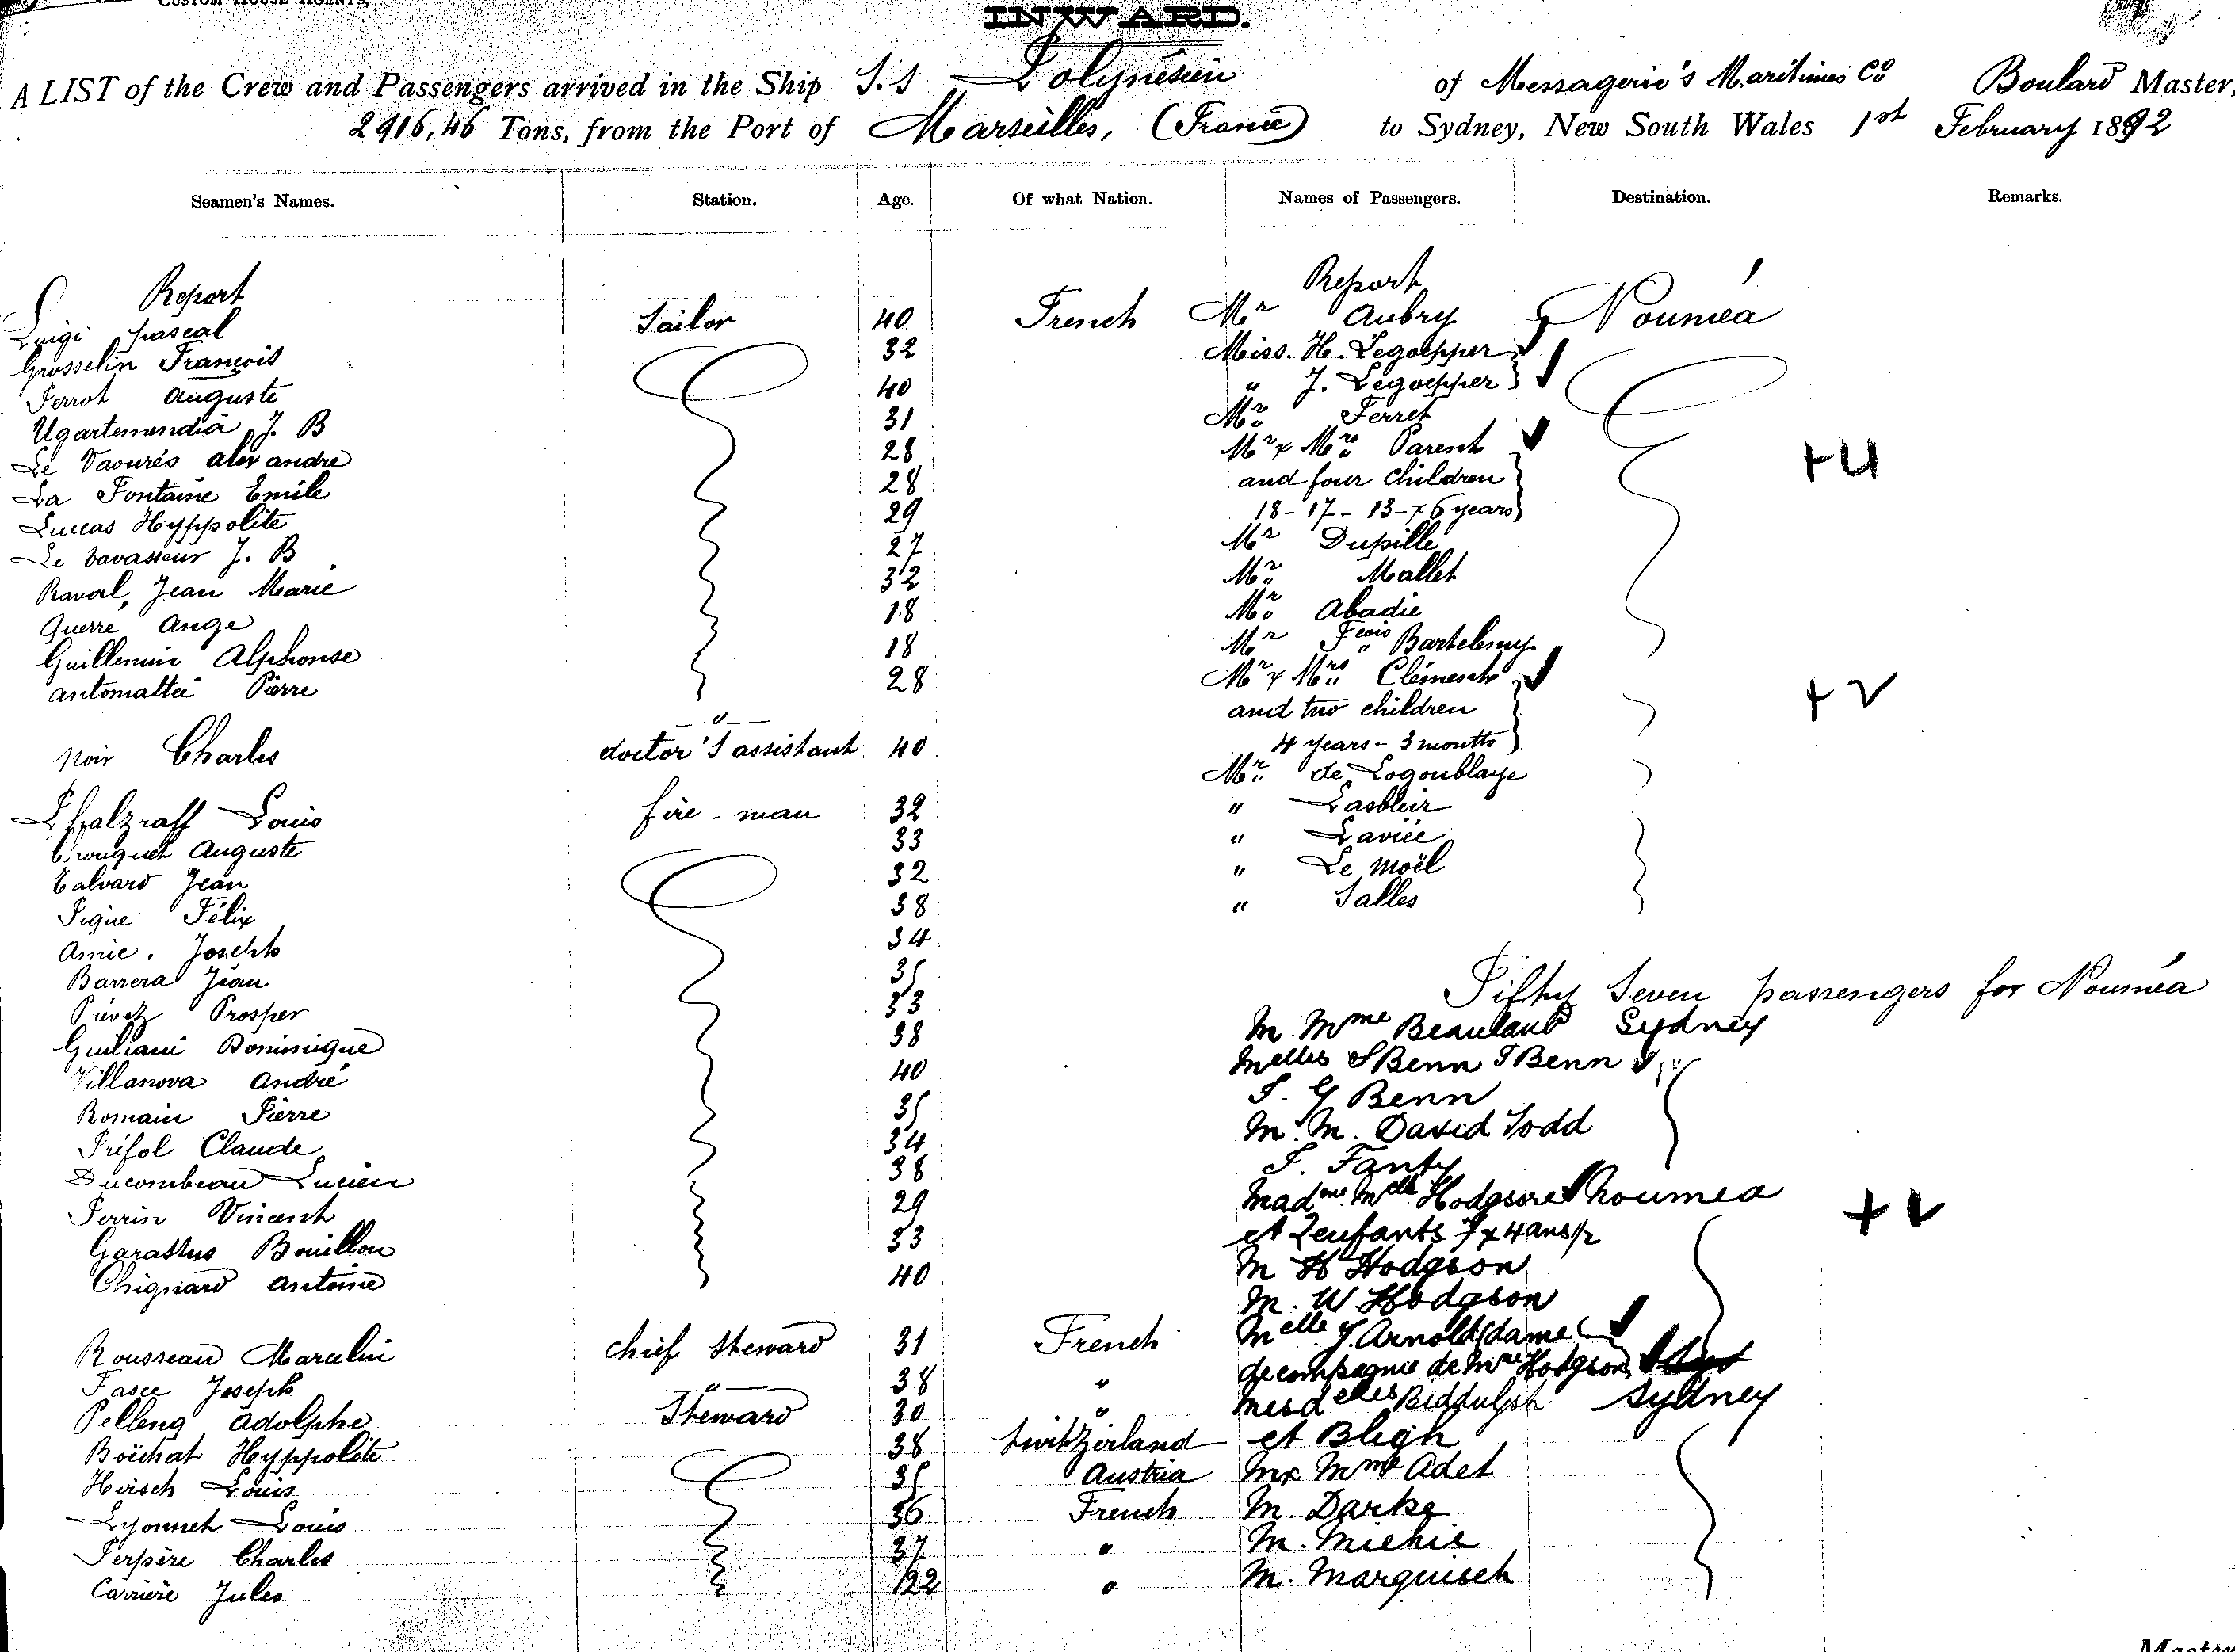 CUSTOM HOUSE AGENTS,
INWARD.
A LIST of the Crew and Passengers arrived in the Ship S.S Polynésien of Messagerie's Maritimes Co Boulard Master,
2916,46 Tons, from the Port of Marseilles, (France) to Sydney, New South Wales 1st February 1892
Seamen's Names. Station. Age. Of what Nation. Names of Passengers. Destination. Remarks.
Report Report
Luigi pascal Sailor 40 French Mr Aubry Nouméa
Grosselin François 32 Miss. H. Legoepper
Perrot Auguste 40 " J. Legoepper
Ugartemendia J. B 31 Mr Ferret
Le Vaourés alexandre 28 Mr & Mrs Parent
La Fontaine Emile 28 and four children +4
Luccas Hyppolite 29 18 - 17 - 13 - & 6 years
Le Vavasseur J. B 27 Mr Dupille
Raval, Jean Marie 32 Mr Mallet
Querré Ange 18 Mr Abadie
Guillemin Alphonse 18 Mr Fcois Bartelemy
antomattei Pierre 28 Mr & Mrs Clément
and two children +2
noir Charles doctor's assistant 40 4 years - 3 months
Mr de Logoublaye
Pfalzraff Louis fire-man 32 " Lasbleir
Auguste 33 " Laviée
Talvard Jean 32 " Le Moël
Pique Félix 38 " Salles
Amic. Joseph 34
Barrera Jean 35
Prévot Prosper 33 Fifty Seven passengers for Nouméa
Giuliani Dominique 38 M. Mme Beaulant Sydney
Villanova André 40 Melles S Benn T Benn
Romain Pierre 35 T. G Benn
Préfol Claude 34 M. M. David Todd
Ducombeau Lucien 38 T. Fanty
Perrin Vincent 29 Madme Melle Hodgson Nouméa
Garastus Bouillon 33 et 2 enfants 7 & 4 ans 1/2 +2
Chignard antoine 40 M H Hodgson
M. W Hodgson
Rousseau Marcelin chief steward 31 French Melle Y. Arnold (dame
Fasce Joseph " 38 " de compagnie de Mme Hodgson)
Pelleng Adolphe Steward 30 " Mesdelles Biddulph Sydney
Boéchat Hyppolite 38 Switzerland et Bligh
Hirsch Louis 35 Austria M & Mme Adet
Lyonnet Louis 36 French M. Darke
Perpère Charles 37 " M. Michie
Carrière Jules 22 " M. Marquisch